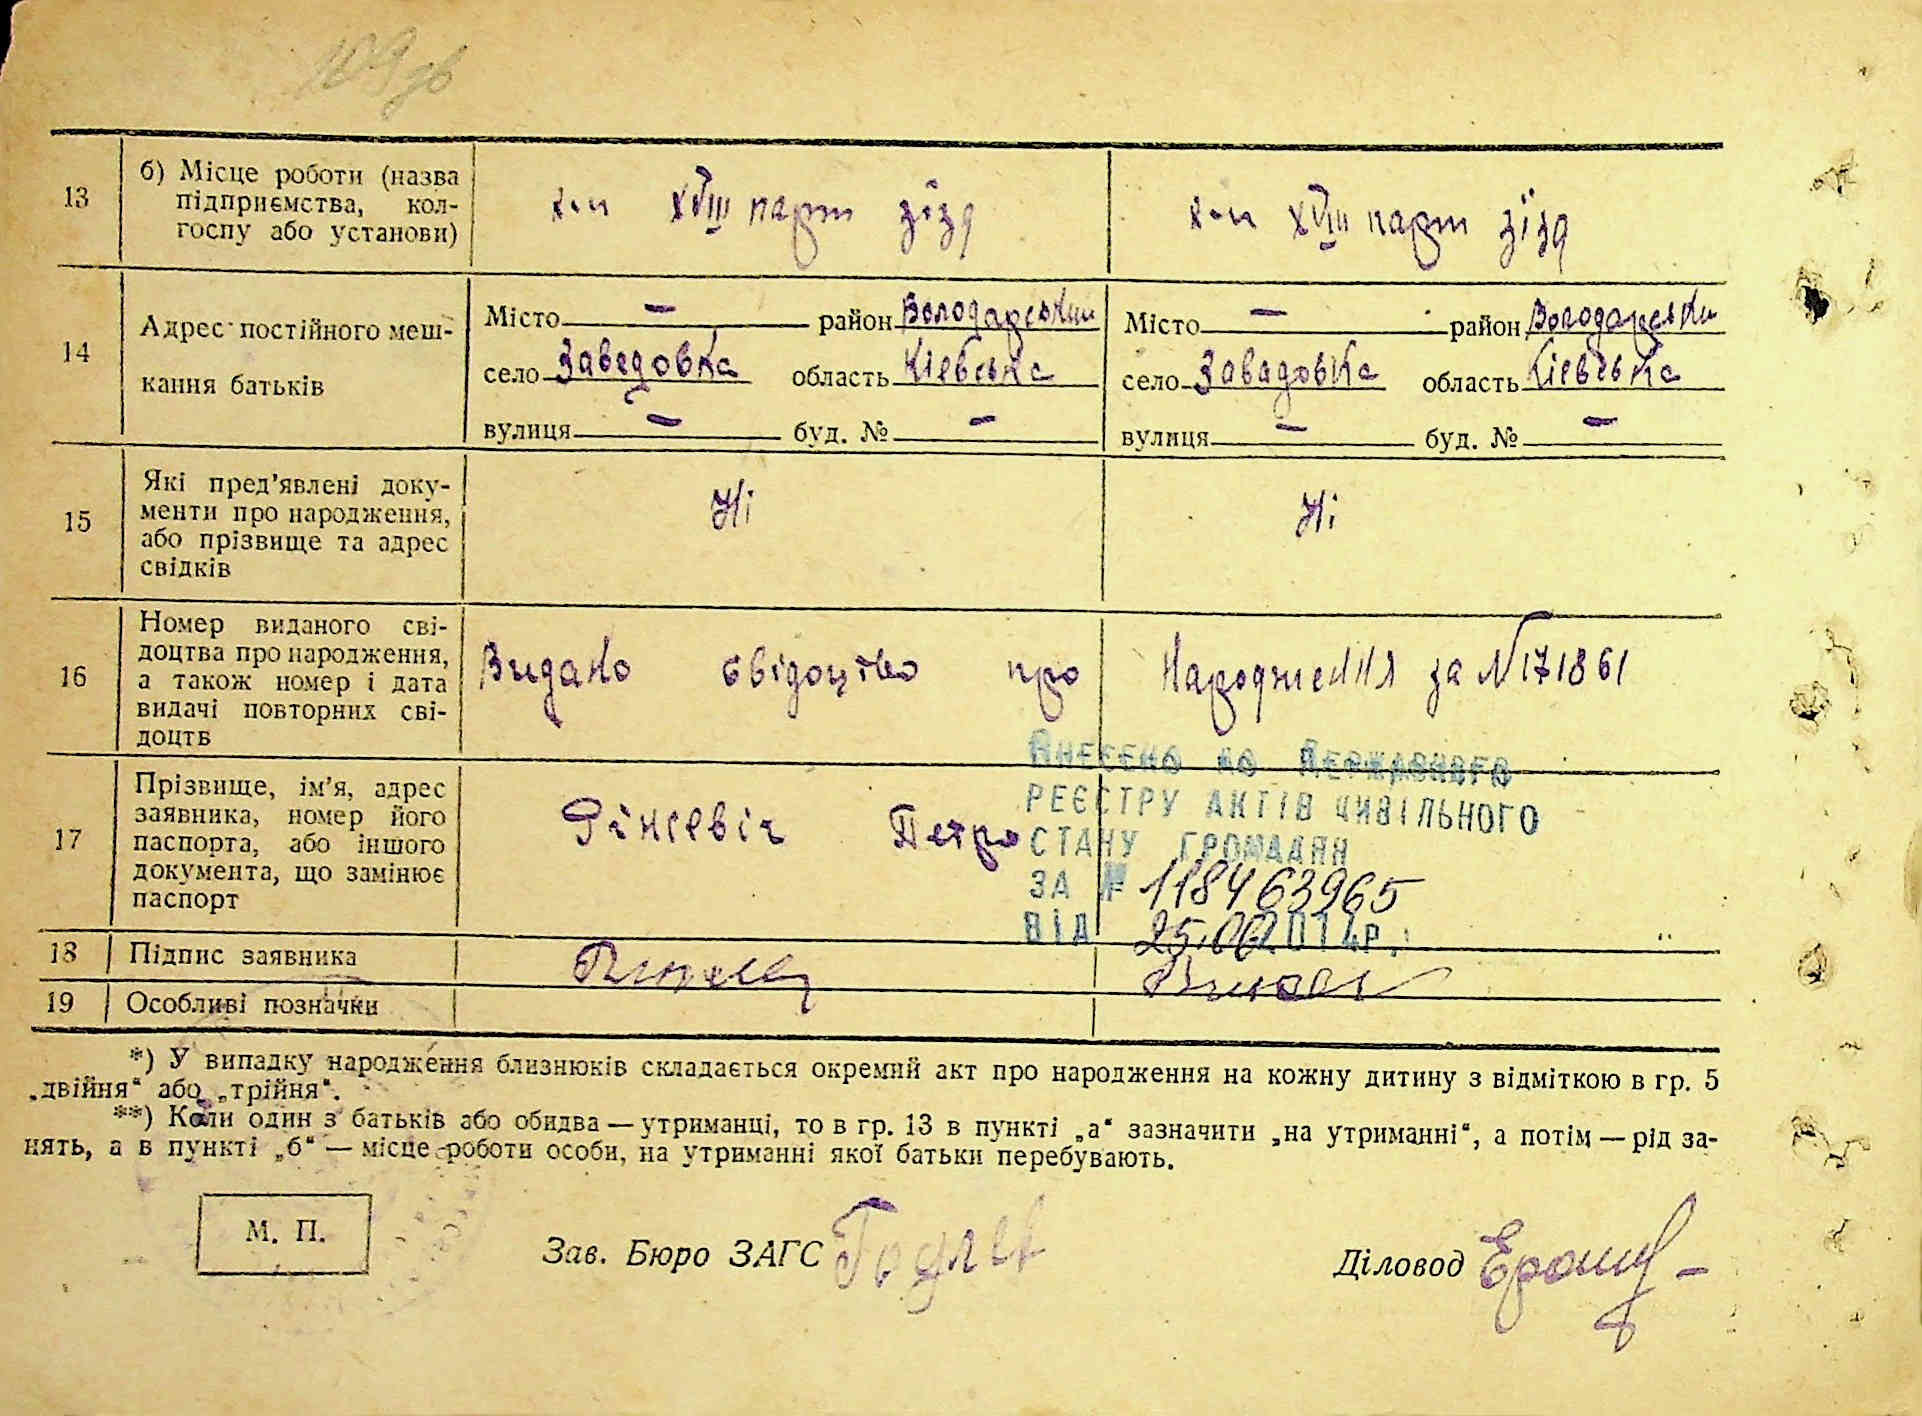 109 зв
13 б) Місце роботи (назва підприємства, кол-
госпу або установи)
к-п XVIII парт зїзд к-п XVIII парт зїзд
14 Адрес постійного меш-
кання батьків
Місто — район Володарський Місто — район Володарськи
село Заведовка область Кіевська село Завадовка область Кіевська
вулиця — буд. № — вулиця — буд. № —
15 Які пред'явлені доку-
менти про народження,
або прізвище та адрес
свідків
Ні Ні
16 Номер виданого сві-
доцтва про народження,
а також номер і дата
видачі повторних сві-
доцтв
Видано свідоцтво про Народження за N 171861
17 Прізвище, ім'я, адрес
заявника, номер його
паспорта, або іншого
документа, що замінює
паспорт
Петро
Внесено до Державного
реєстру актів цивільного
стану громадян
за № 118463965
від 25.06.2014р.
18 Підпис заявника
19 Особливі позначки
*) У випадку народження близнюків складається окремий акт про народження на кожну дитину з відміткою в гр. 5
„двійня“ або „трійня“.
**) Коли один з батьків або обидва — утриманці, то в гр. 13 в пункті „а“ зазначити „на утриманні“, а потім — рід за-
нять, а в пункті „б“ — місце роботи особи, на утриманні якої батьки перебувають.
М. П.
Зав. Бюро ЗАГС Діловод